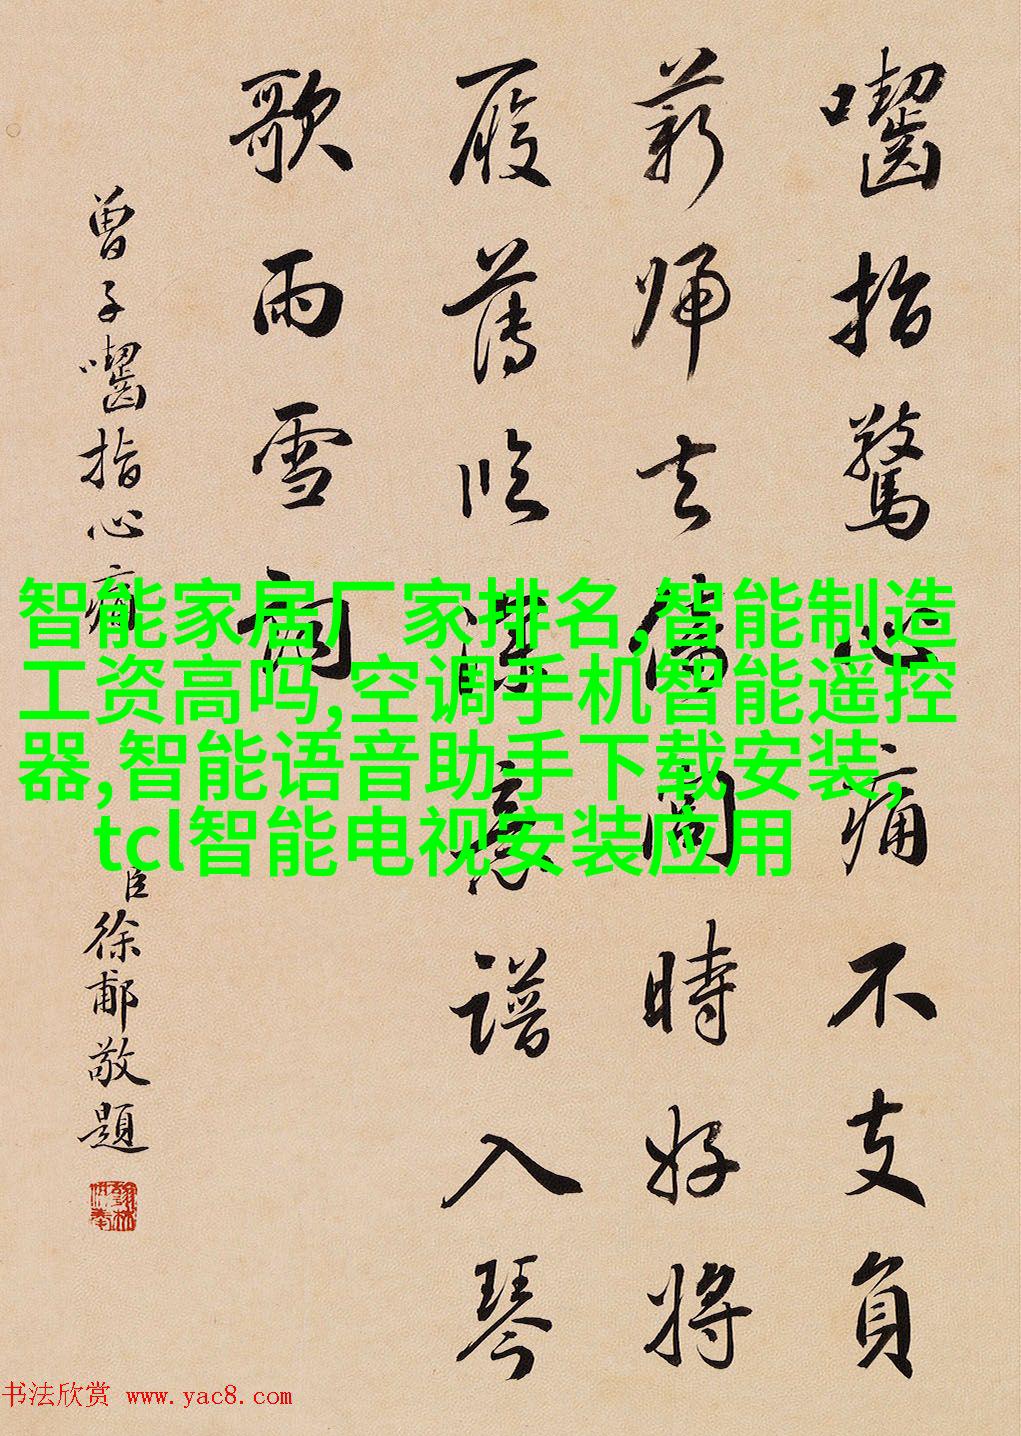 囓指驚心痛不支負
薪歸去倚閭時好將
履薄臨深意譜入琴
歌雨雪詞
曾子囓指心痛
臣徐郙敬題
智能家居厂家排名,智能制造
工资高吗,空调手机智能遥控
器,智能语音助手下载安装,
tcl智能电视安装应用
书法欣赏 www.yac8.com